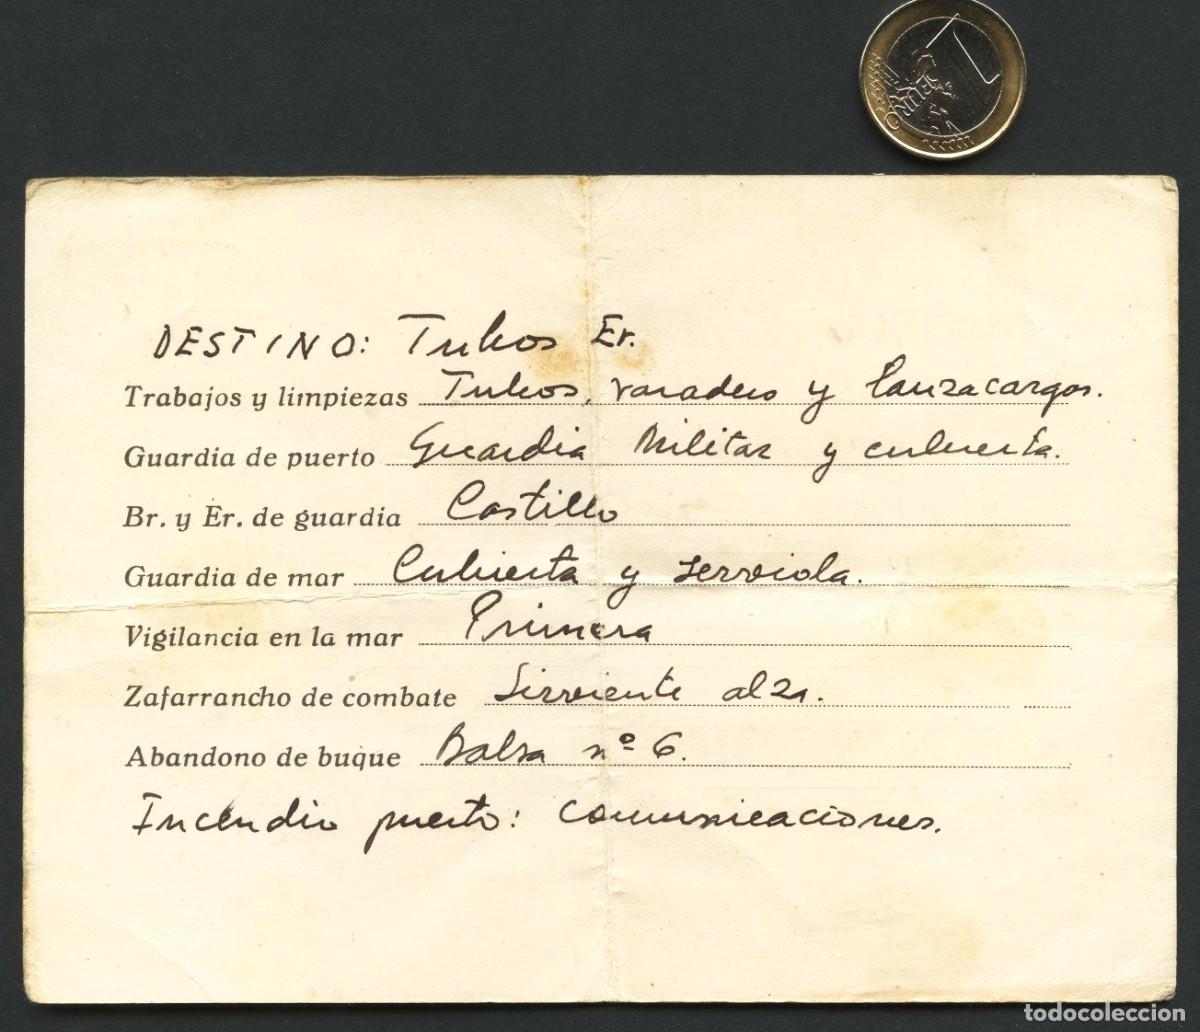 DESTINO: Tubos Er.
Trabajos y limpiezas Tubos, varadero y lanzacargos.
Guardia de puerto Guardia Militar y cubierta.
Br. y Er. de guardia Castillo
Guardia de mar Cubierta y serviola.
Vigilancia en la mar Primera
Zafarrancho de combate Sirviente alza.
Abandono de buque Balsa nº 6.
Incendio puerto: comunicaciones.
todocoleccion